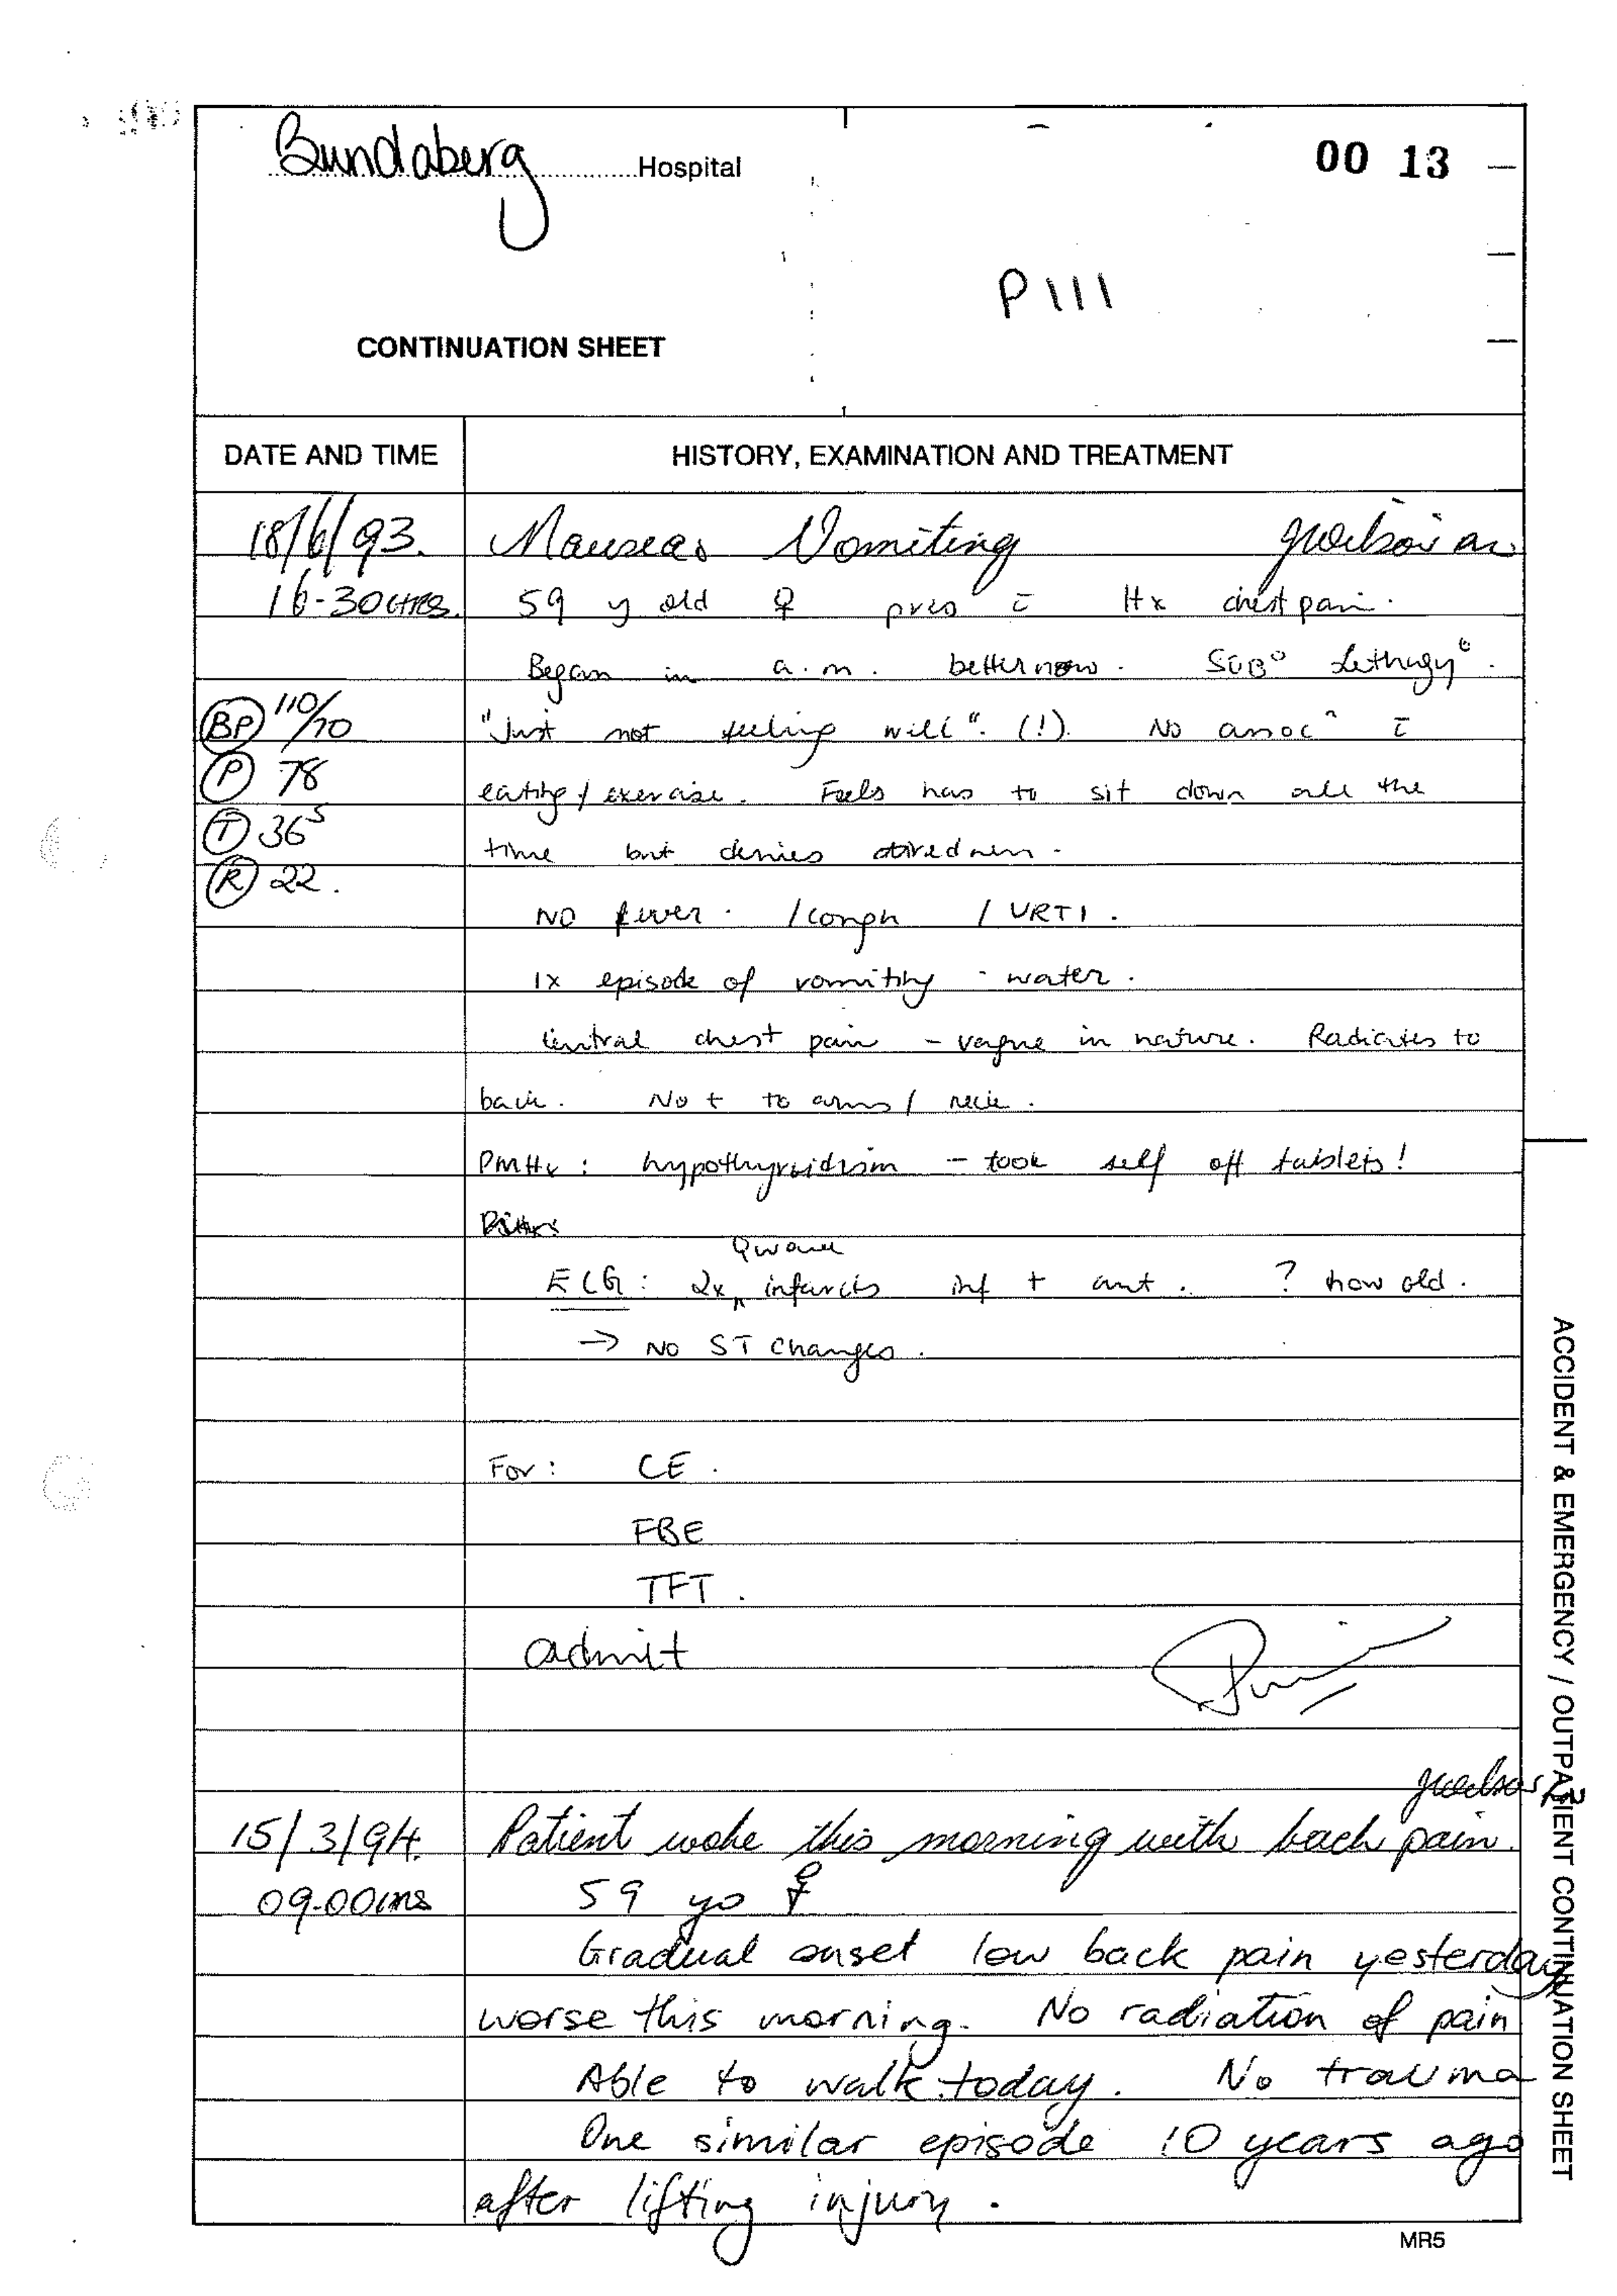 Bundaberg Hospital
00 13
P111
CONTINUATION SHEET
DATE AND TIME
HISTORY, EXAMINATION AND TREATMENT
18/6/93. Nausea Vomiting
16-30HRS. 59 y old ♀ pres c̄ Hx chest pain.
Began in a.m. better now. SOB° Lethargy
BP 110/70 "Just not feeling well". (!). No assocⁿ c̄
P 78 eating / exercise. Feels has to sit down all the
T 36⁵ time but denies tiredness.
R 22.
NO fever. / cough / URTI.
1x episode of vomiting - water.
Central chest pain - vague in nature. Radiates to
back. Not to arms / neck.
PMHx: hypothyroidism - took self off tablets!
Q wave
ECG: 2x infarcts inf + ant. ? how old.
→ NO ST Changes.
For: CE.
FBE
TFT.
admit
15/3/94. Patient woke this morning with back pain.
09.00hrs 59 yo ♀
Gradual onset low back pain yesterday
worse this morning. No radiation of pain
Able to walk today. No trauma
One similar episode 10 years ago
after lifting injury.
MR5
ACCIDENT & EMERGENCY / OUTPATIENT CONTINUATION SHEET